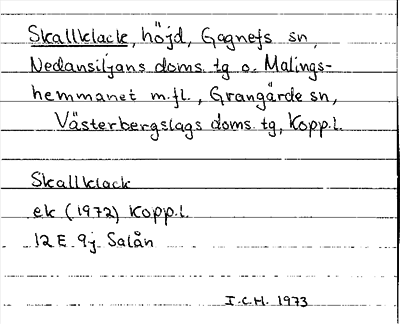 Skallklack, höjd, Gagnefs sn,
Nedansiljans doms. tg o. Malings-
hemmanet m.fl., Grangärde sn,
Västerbergslags doms. tg, Kopp.l.
Skallklack
ek (1972) Kopp.l.
12 E 9j Salån
I.C.H. 1973